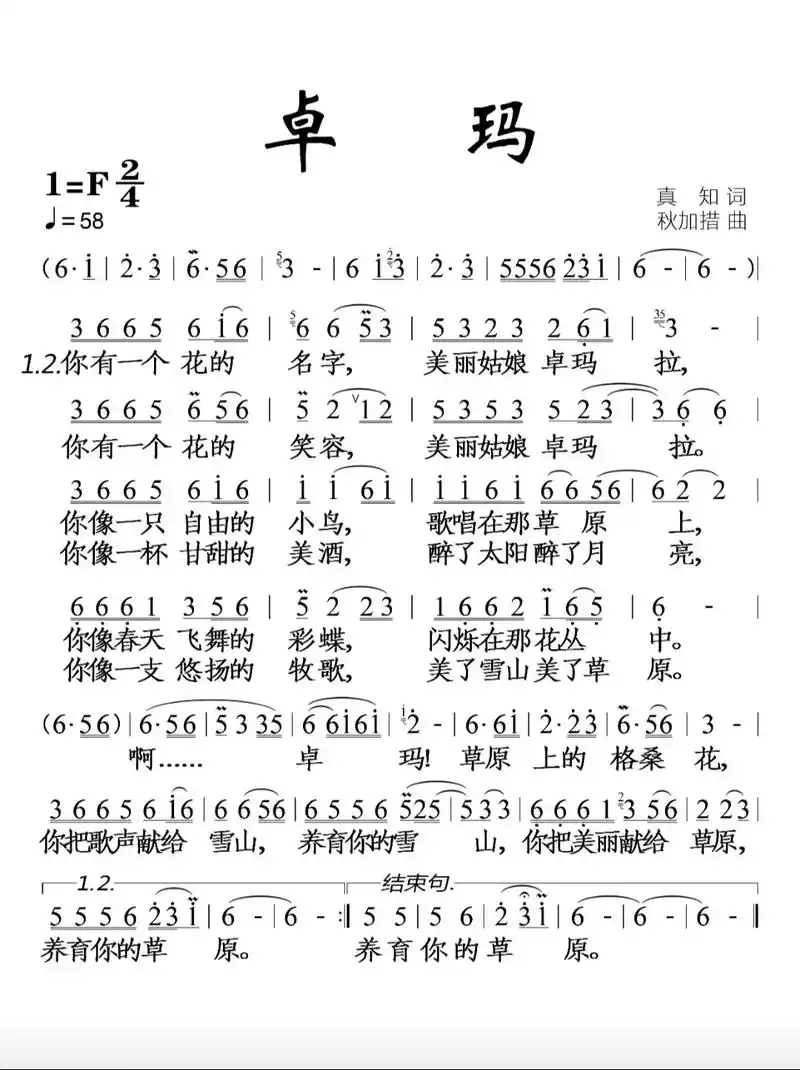 卓 玛
1=F 2/4
♩=58
真 知 词
秋加措 曲
(6·i | 2·3 | 6·56 | 5 3 - | 6 i 2 3 | 2·3 | 5556 23i | 6 - | 6 - )|
3 6 6 5 6 i6 | 5 6 6 53 | 5 3 2 3 2 61 | 35 3 - |
1.2.你有一个 花的 名字, 美丽姑娘 卓玛 拉,
3 6 6 5 6 56 | 5 2 V12 | 5 3 5 3 5 23 | 3 6 6 |
你有一个 花的 笑容, 美丽姑娘 卓玛 拉。
3 6 6 5 6 i 6 | i i 6i | i i 6 i 6 656 | 6 2 2 |
你像一只 自由的 小鸟, 歌唱在那草 原 上,
你像一杯 甘甜的 美酒, 醉了太阳醉了月 亮,
6 6 6 1 3 5 6 | 5 2 23 | 1 6 6 2 i 65 | 6 - |
你像春天 飞舞的 彩蝶, 闪烁在那花丛 中。
你像一支 悠扬的 牧歌, 美了雪山美了草 原。
(6·56) | 6·56 5 3 35 | 6 6i6i | i 2 - | 6·6i | 2·23 | 6·56 | 3 - |
啊…… 卓 玛! 草原 上的 格桑 花,
3 6 6 5 6 i6 | 6 6 56 | 6 5 5 6 525 | 5 33 | 6 6 6 1 2 3 56 | 2 23 |
你把歌声献给 雪山, 养育你的雪 山, 你把美丽献给 草原,
1.2. 结束句.
5 5 5 6 23i | 6 - | 6 - :| 5 5 | 5 6 | 2 3i | 6 - | 6 - | 6 - ‖
养育你的草 原。 养育 你的 草 原。